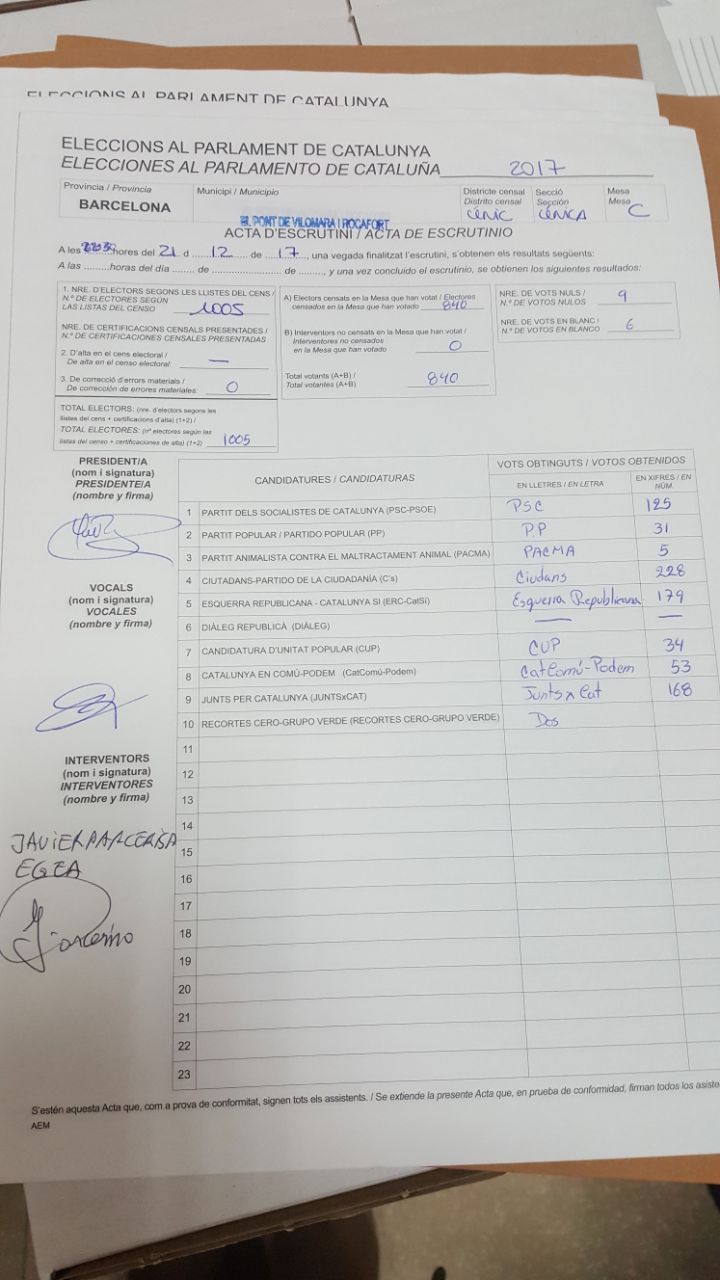 ELECCIONS AL PARLAMENT DE CATALUNYA
ELECCIONS AL PARLAMENT DE CATALUNYA
ELECCIONES AL PARLAMENTO DE CATALUÑA 2017
Província / Provincia
BARCELONA
Municipi / Municipio
EL PONT DE VILOMARA I ROCAFORT
Districte censal
Distrito censal
CÈNIC
Secció
Sección
CÈNICA
Mesa
Mesa
C
ACTA D'ESCRUTINI / ACTA DE ESCRUTINIO
A les 22:30 hores del 21 d 12 de 17, una vegada finalitzat l'escrutini, s'obtenen els resultats següents:
A las ........horas del día ....... de .................. de ........, y una vez concluido el escrutinio, se obtienen los siguientes resultados:
1. NRE. D'ELECTORS SEGONS LES LLISTES DEL CENS /
N.º DE ELECTORES SEGÚN
LAS LISTAS DEL CENSO 1005
NRE. DE CERTIFICACIONS CENSALS PRESENTADES /
N.º DE CERTIFICACIONES CENSALES PRESENTADAS
2. D'alta en el cens electoral /
De alta en el censo electoral: —
3. De correcció d'errors materials /
De corrección de errores materiales: 0
TOTAL ELECTORS: (nre. d'electors segons les
llistes del cens + certificacions d'alta) (1+2) /
TOTAL ELECTORES: (nº electores según las
listas del censo + certificaciones de alta) (1+2) 1005
A) Electors censats en la Mesa que han votat / Electores
censados en la Mesa que han votado 840
B) Interventors no censats en la Mesa que han votat /
Interventores no censados
en la Mesa que han votado 0
Total votants (A+B) /
Total votantes (A+B) 840
NRE. DE VOTS NULS /
N.º DE VOTOS NULOS 9
NRE. DE VOTS EN BLANC /
N.º DE VOTOS EN BLANCO 6
PRESIDENT/A
(nom i signatura)
PRESIDENTE/A
(nombre y firma)
VOCALS
(nom i signatura)
VOCALES
(nombre y firma)
INTERVENTORS
(nom i signatura)
INTERVENTORES
(nombre y firma)
JAVIER PARCERISA
EGEA
CANDIDATURES / CANDIDATURAS
VOTS OBTINGUTS / VOTOS OBTENIDOS
EN LLETRES / EN LETRA
EN XIFRES / EN NÚM.
1 PARTIT DELS SOCIALISTES DE CATALUNYA (PSC-PSOE) PSC 125
2 PARTIT POPULAR / PARTIDO POPULAR (PP) P.P 31
3 PARTIT ANIMALISTA CONTRA EL MALTRACTAMENT ANIMAL (PACMA) PACMA 5
4 CIUTADANS-PARTIDO DE LA CIUDADANÍA (C's) Ciudans 228
5 ESQUERRA REPUBLICANA - CATALUNYA SÍ (ERC-CatSí) Esquerra Republicana 179
6 DIÀLEG REPUBLICÀ (DIÀLEG) — —
7 CANDIDATURA D'UNITAT POPULAR (CUP) CUP 34
8 CATALUNYA EN COMÚ-PODEM (CatComú-Podem) CatComú-Podem 53
9 JUNTS PER CATALUNYA (JUNTSxCAT) Junts x Cat 168
10 RECORTES CERO-GRUPO VERDE (RECORTES CERO-GRUPO VERDE) Dos
11
12
13
14
15
16
17
18
19
20
21
22
23
S'estén aquesta Acta que, com a prova de conformitat, signen tots els assistents. / Se extiende la presente Acta que, en prueba de conformidad, firman todos los asiste
AEM